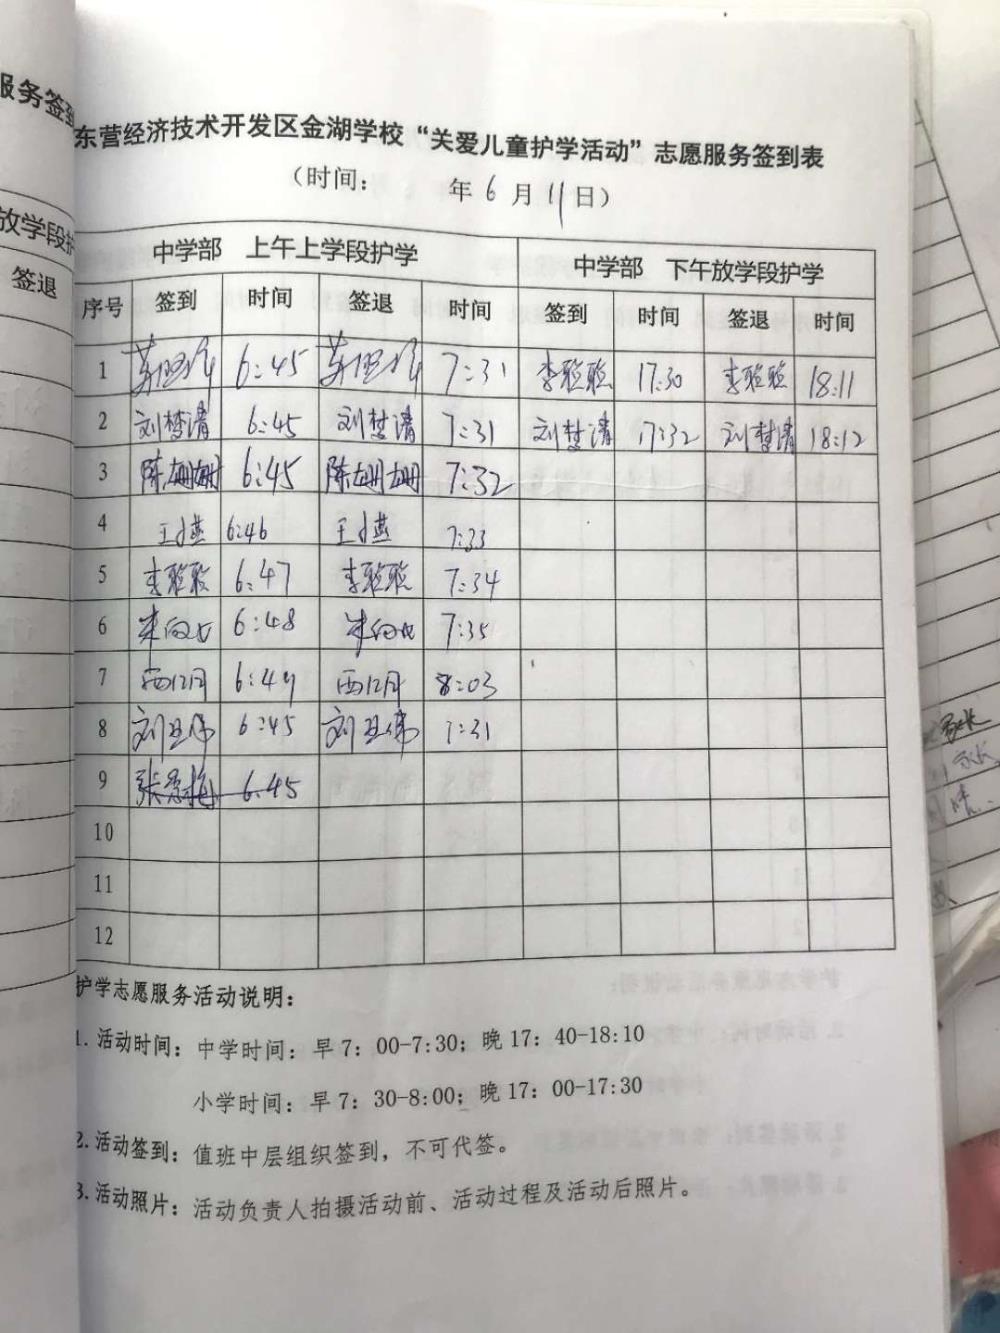 服务签到
东营经济技术开发区金湖学校“关爱儿童护学活动”志愿服务签到表
（时间： 年 6 月 11 日）
放学段护
签退
中学部 上午上学段护学 中学部 下午放学段护学
序号 签到 时间 签退 时间 签到 时间 签退 时间
1 6:45 7:31 李聪聪 17:30 李聪聪 18:11
2 刘梦清 6:45 刘梦清 7:31 刘梦清 17:32 刘梦清 18:12
3 陈姗姗 6:45 陈姗姗 7:32
4 王小燕 6:46 王小燕 7:33
5 李聪聪 6:47 李聪聪 7:34
6 6:48 7:35
7 6:49 8:03
8 6:45 7:31
9 6:45
10
11
12
护学志愿服务活动说明：
1. 活动时间：中学时间：早7：00-7:30；晚17：40-18:10
小学时间：早7：30-8:00；晚17：00-17:30
2. 活动签到：值班中层组织签到，不可代签。
3. 活动照片：活动负责人拍摄活动前、活动过程及活动后照片。